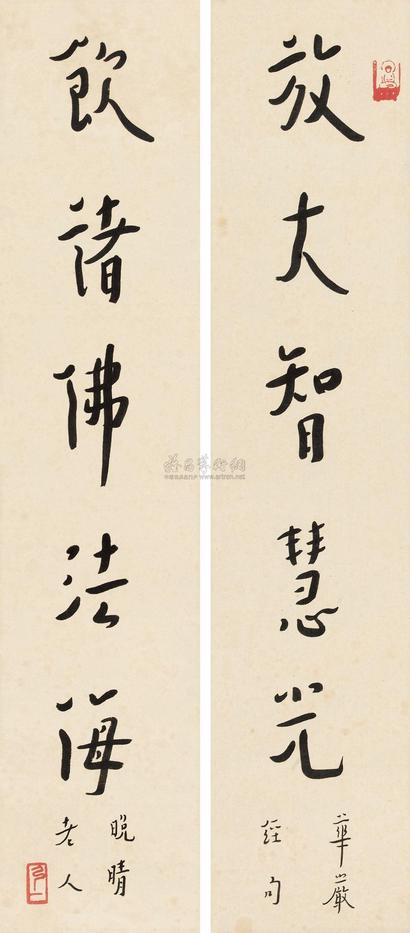 放大智慧光
華嚴
經句
飲諸佛法海
晚晴
老人
www.artron.net